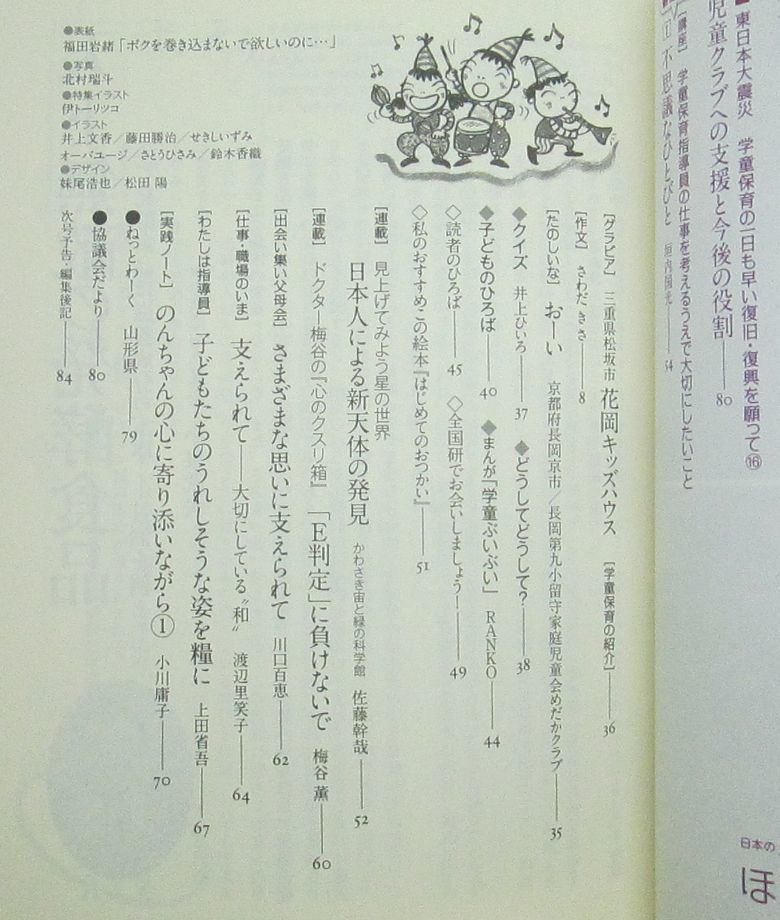 ■東日本大震災 学童保育の一日も早い復旧・復興を願って⑯
児童クラブへの支援と今後の役割――80
[講座] 学童保育指導員の仕事を考えるうえで大切にしたいこと
不思議なひとびと 垣内国光――54
日本の
ほ
●表紙
福田岩緒「ボクを巻き込まないで欲しいのに…」
●写真
北村瑞斗
●特集イラスト
伊トーリツコ
●イラスト
井上文香／藤田勝治／せきしいずみ
オーバユージ／さとうひさみ／鈴木香織
●デザイン
妹尾浩也／松田 陽
[グラビア] 三重県松坂市 花岡キッズハウス [学童保育の紹介]――36
[作文] さわだ きさ――8
[たのしいな] おーい 京都府長岡京市／長岡第九小留守家庭児童会めだかクラブ――35
◆クイズ 井上ひいろ――37 ◆どうしてどうして?――38
◆子どものひろば――40 ◆まんが『学童ぶいぶい』 RANKO――44
◇読者のひろば――45 ◇全国研でお会いしましょう!――49
◇私のおすすめこの絵本『はじめてのおつかい』――51
[連載] 見上げてみよう星の世界
日本人による新天体の発見 かわさき宙と緑の科学館 佐藤幹哉――52
[連載] ドクター梅谷の『心のクスリ箱』 「E判定」に負けないで 梅谷 薫――60
[出会い集い父母会] さまざまな思いに支えられて 川口百恵――62
[仕事・職場のいま] 支えられて――大切にしている〝和〟 渡辺里笑子――64
[わたしは指導員] 子どもたちのうれしそうな姿を糧に 上田省吾――67
[実践ノート] のんちゃんの心に寄り添いながら① 小川庸子――70
●ねっとわーく 山形県――79
●協議会だより――80
次号予告・編集後記――84